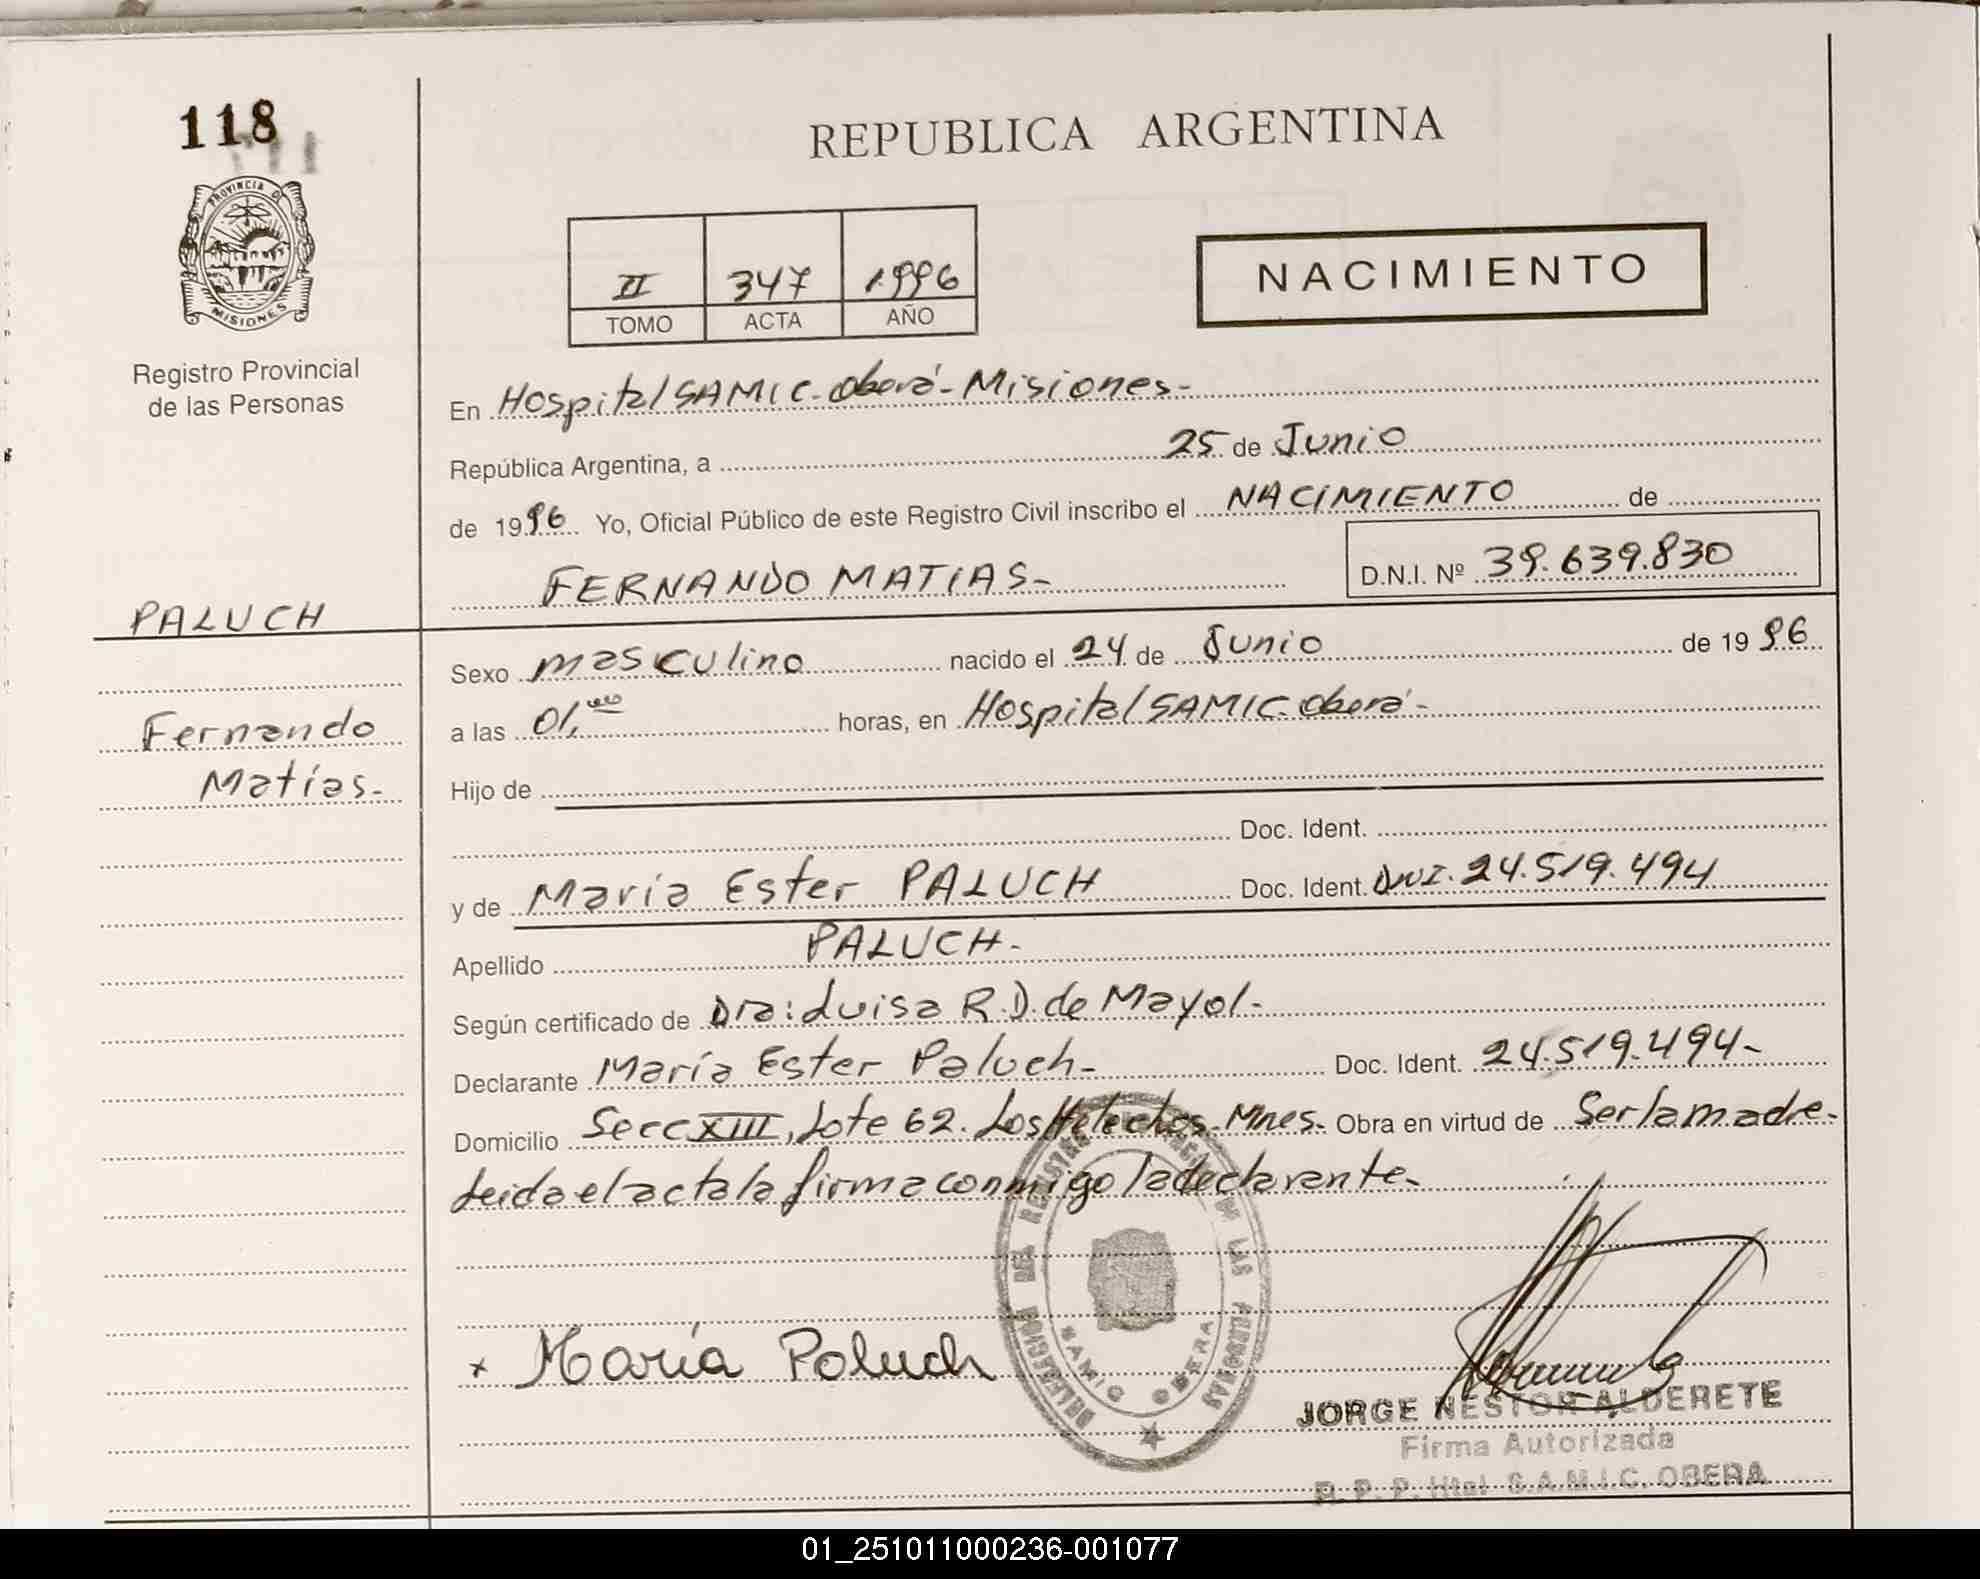 118
PROVINCIA DE
MISIONES
Registro Provincial
de las Personas
REPUBLICA ARGENTINA
II 347 1996
TOMO ACTA AÑO
NACIMIENTO
En Hospital SAMIC - Oberá - Misiones -
República Argentina, a 25 de Junio
de 1996 Yo, Oficial Público de este Registro Civil inscribo el NACIMIENTO de
FERNANDO MATIAS - D.N.I. Nº 39.639.830
PALUCH
Fernando
Matías -
Sexo masculino nacido el 24 de Junio de 1996
a las 01,00 horas, en Hospital SAMIC Oberá -
Hijo de
Doc. Ident.
y de María Ester PALUCH Doc. Ident. DNI. 24.519.494
Apellido PALUCH -
Según certificado de Dra: Luisa R. D. de Mayol -
Declarante María Ester Paluch - Doc. Ident. 24.519.494 -
Domicilio Secc XIII, Lote 62. Los Helechos - Mnes. Obra en virtud de Ser la madre -
Leida el acta la firma conmigo la declarante -
DELEGACION DEL REGISTRO DE LAS PERSONAS
SAMIC OBERA
x María Paluch
JORGE NESTOR ALDERETE
Firma Autorizada
R. P. P. Htal S.A.M.I.C. OBERA
01_251011000236-001077